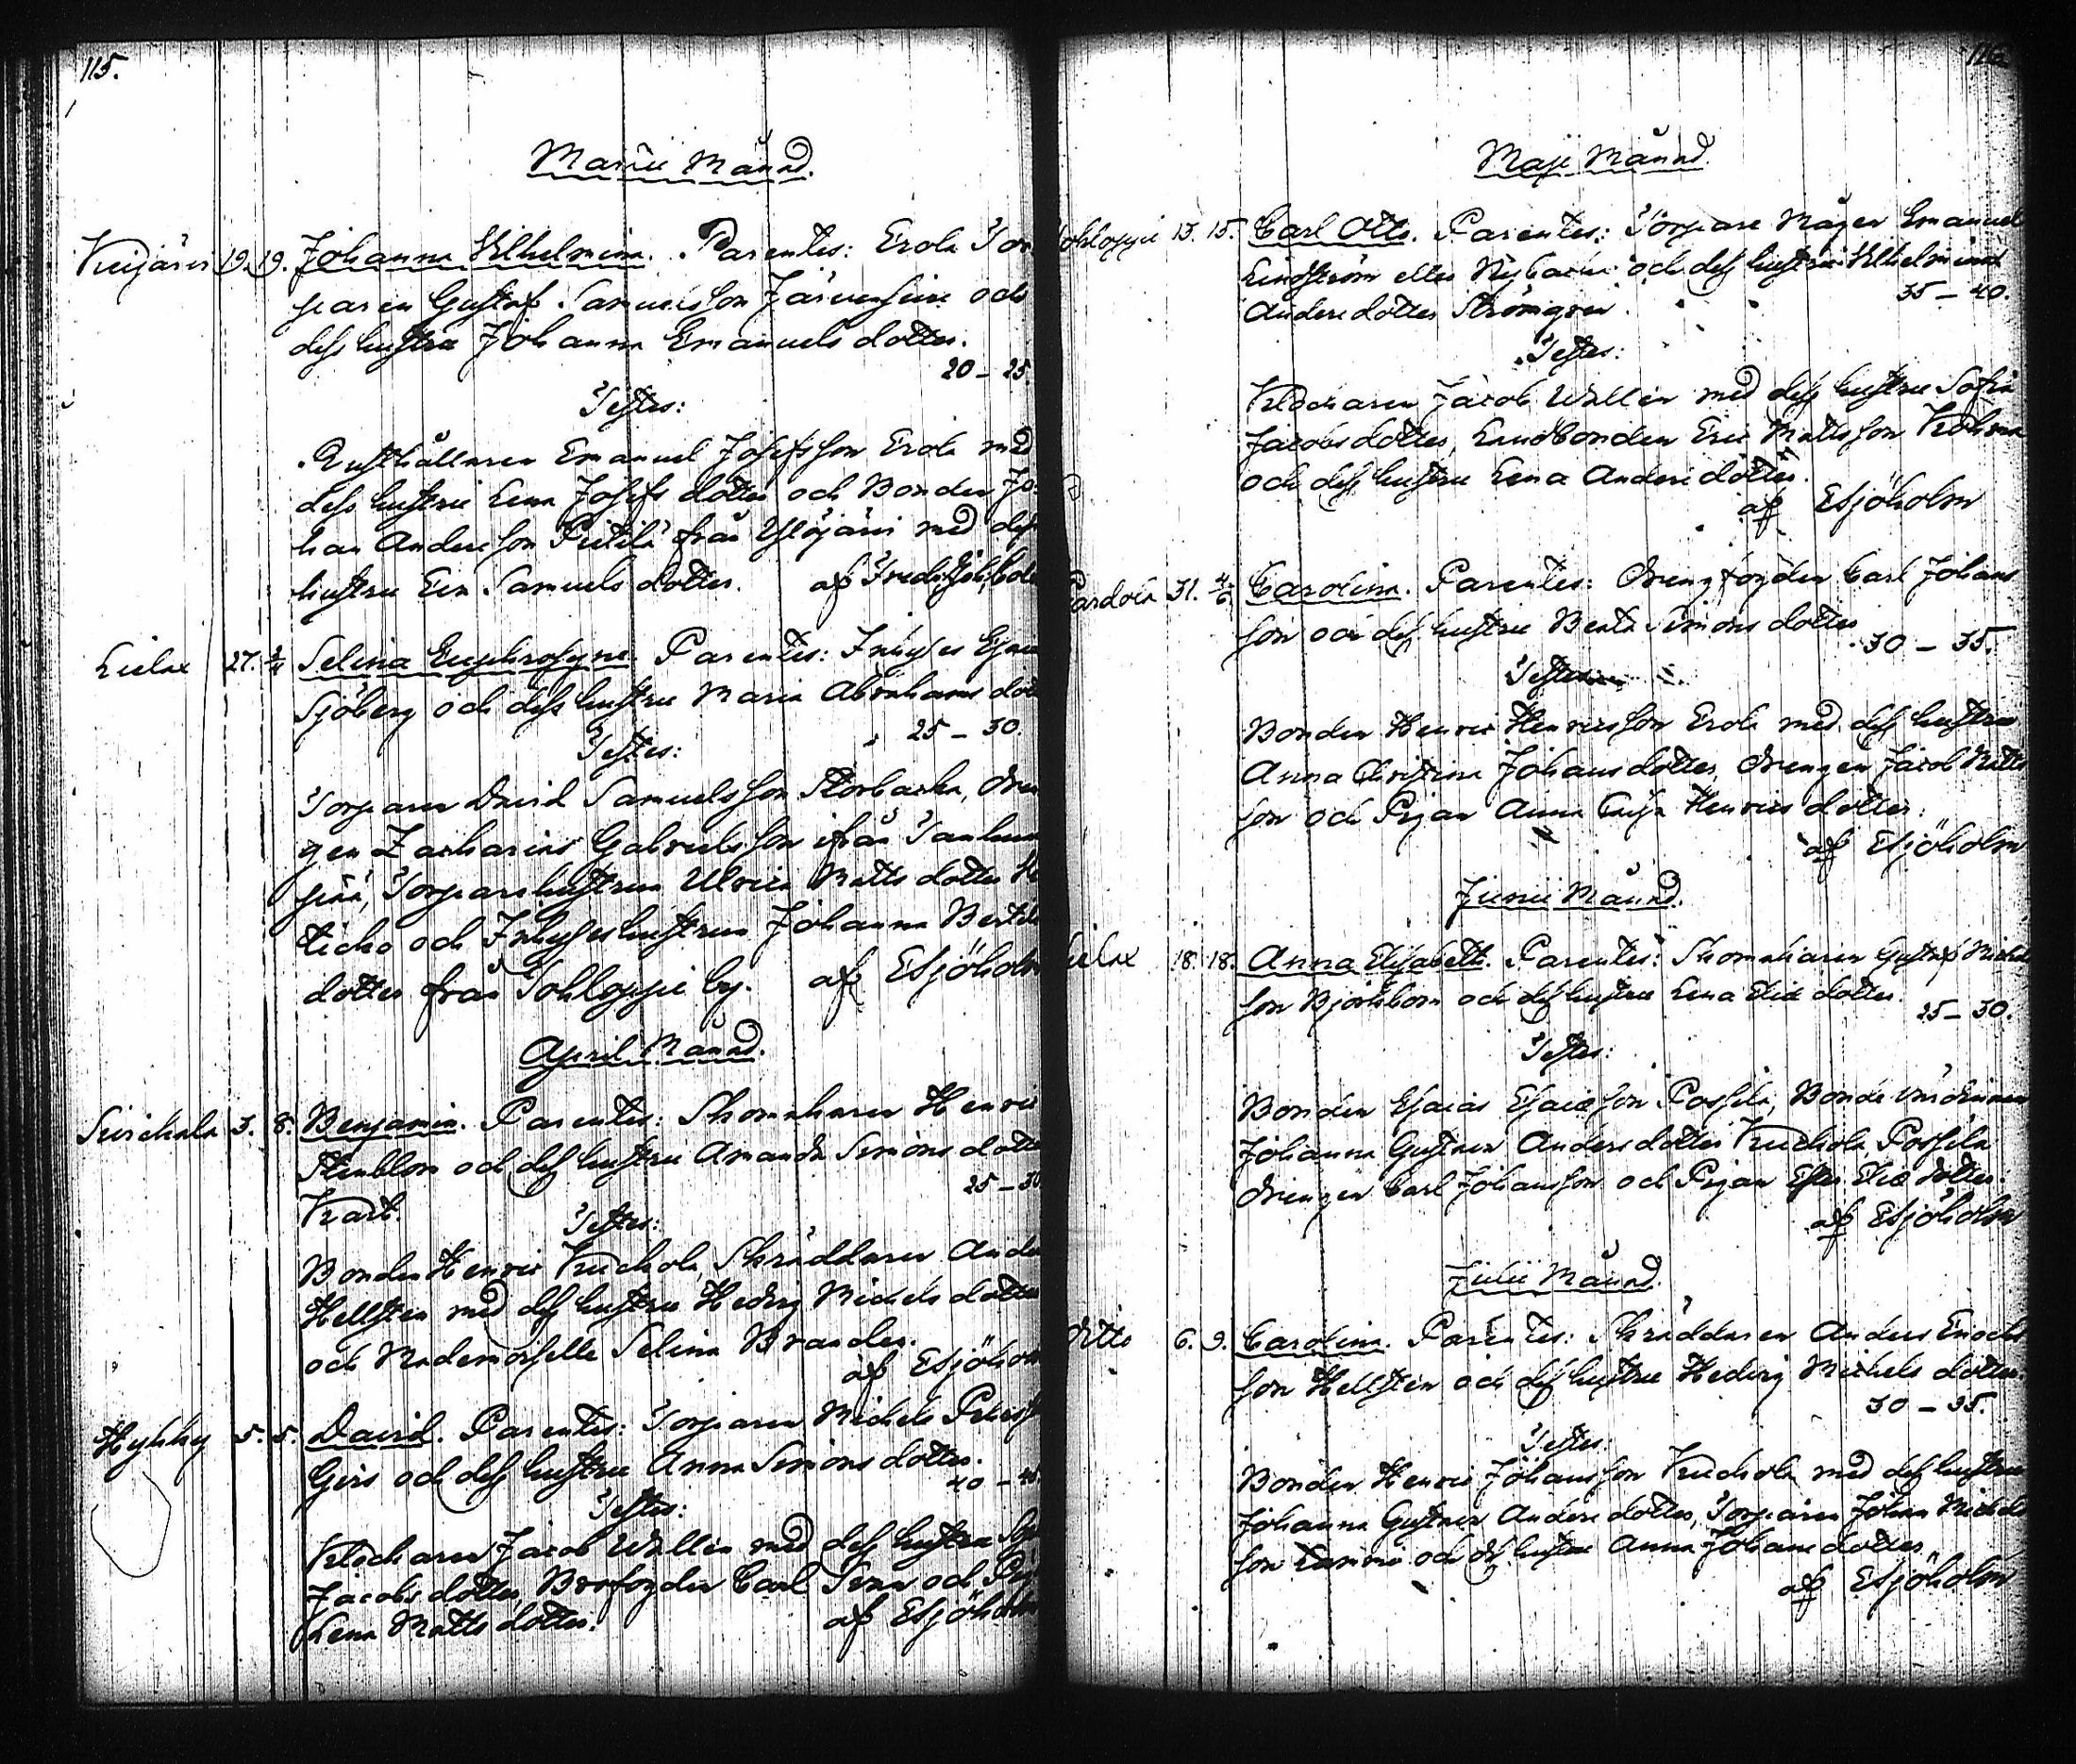 115.
Martii Månad.
Kuijärvi 19. 19. Johanna Wilhelmina. Parentes: Erola Tor
paren Gustaf Samuelsson Järvensivu och
dess hustru Johanna Emanuels dotter.
20 – 25.
Testes:
Rusthållaren Emanuel Josefsson Erola med
dess hustru Lena Josefs dotter och Bonden Jo
han Andersson Pietilä från Ylöjärvi med dess
hustru Eva Samuels dotter. af
Lielax 27. Selina Euphrosyne. Parentes: Inhyses
Sjöberg och dess hustru Maria Abrahams dot
25 – 30.
Testes:
Torparen David Samuelsson Storbacka, Dren
gen Zacharias Gabrielsson ifrån
pää, Torparehustrun Ulrica Matts dotter
och Inhyseshustrun Johanna Bertils
dotter från Tohloppi by. af ESjöholm
April Månad.
3. 8. Benjamin. Parentes: Skomakaren Henric
Stenblom och dess hustru Amanda Simons dotter
25 – 30
Testes:
Bonden Henric Kuckola, Skräddaren Anders
Hellsten med dess hustru Hedvig Michels dotter
och Mademoiselle Selina Brander.
af ESjöholm
Hyhky 5. 5. David. Parentes: Torparen Michel
Girs och dess hustru Anna Simons dotter.
40 – 45
Testes:
Klockaren Jacob Wallin med dess hustru
Jacobs dotter, Brofogden Carl och
Lena Matts dotter. af ESjöholm
116.
Maji Månad.
Tohloppi 13. 15. Carl Otto. Parentes: Torpare Mågen Emanuel
Lindström eller Nybacka och dess hustru Wilhelmina
35 – 40.
Anders dotter Strömgren.
Testes:
Klockaren Jacob Wallin med dess hustru Sofia
Jacobs dotter, Landbonden Eric Mattsson
och dess hustru Lena Anders dotter.
af ESjöholm
31. 4/6 Carolina. Parentes: Drengfogden Carl Johans
son och dess hustru Beata Simons dotter
30 – 35.
Testes
Bonden Henric Henricsson Erola med dess hustru
Anna Christina Johans dotter, Drengen Jacob Matts
son och Pigan Anna Caisa Henrics dotter.
af ESjöholm
Junii Månad.
Lielax 18. 18. Anna Elisabeth. Parentes: Skomakaren Gustaf Michels
son Björkbom och dess hustru Lena Eliæ dotter.
25 – 30.
Testes:
Bonden Esaias Esaiæson Possila, Bonde värdinnan
Johanna Gustava Anders dotter Kuckola, Possila
Drengen Carl Johansson och Pigan Ester Eliæ dotter.
af ESjöholm
Julii Månad.
Ditto 6. 9. Carolina. Parentes: Skräddaren Anders Enochs
son Hellsten och dess hustru Hedvig Michels dotter.
30 – 35.
Testes:
Bonden Henric Johansson Kuckola med dess hustru
Johanna Gustava Anders dotter, Torparen Johan Michels
son och dess hustru Anna Johans dotter
af ESjöholm